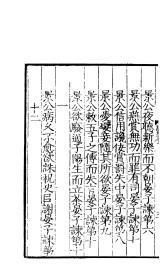 景公夜聽新樂而不朝晏子諫第六
景公燕賞無功而罪有司晏子諫第七
景公信用讒佞賞罰失中晏子諫第八
景公愛嬖妾隨其所欲晏子諫第九
景公敕五子之傅而失言晏子諫第十
景公欲廢適子陽生而立荼晏子諫第十
一
景公病久不愈欲誅祝史以謝晏子諫第
十二